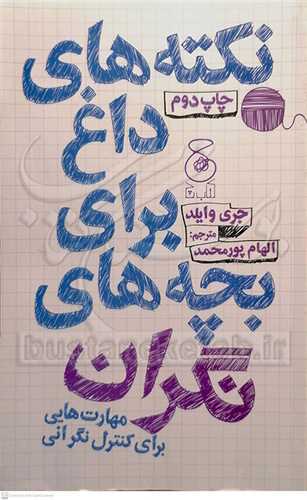 نکته‌های
چاپ دوم
داغ
برای
جری وایلد
مترجم:
الهام پورمحمد
بچه‌های
نگران
مهارت‌هایی
برای کنترل نگرانی
bustaneketab.ir